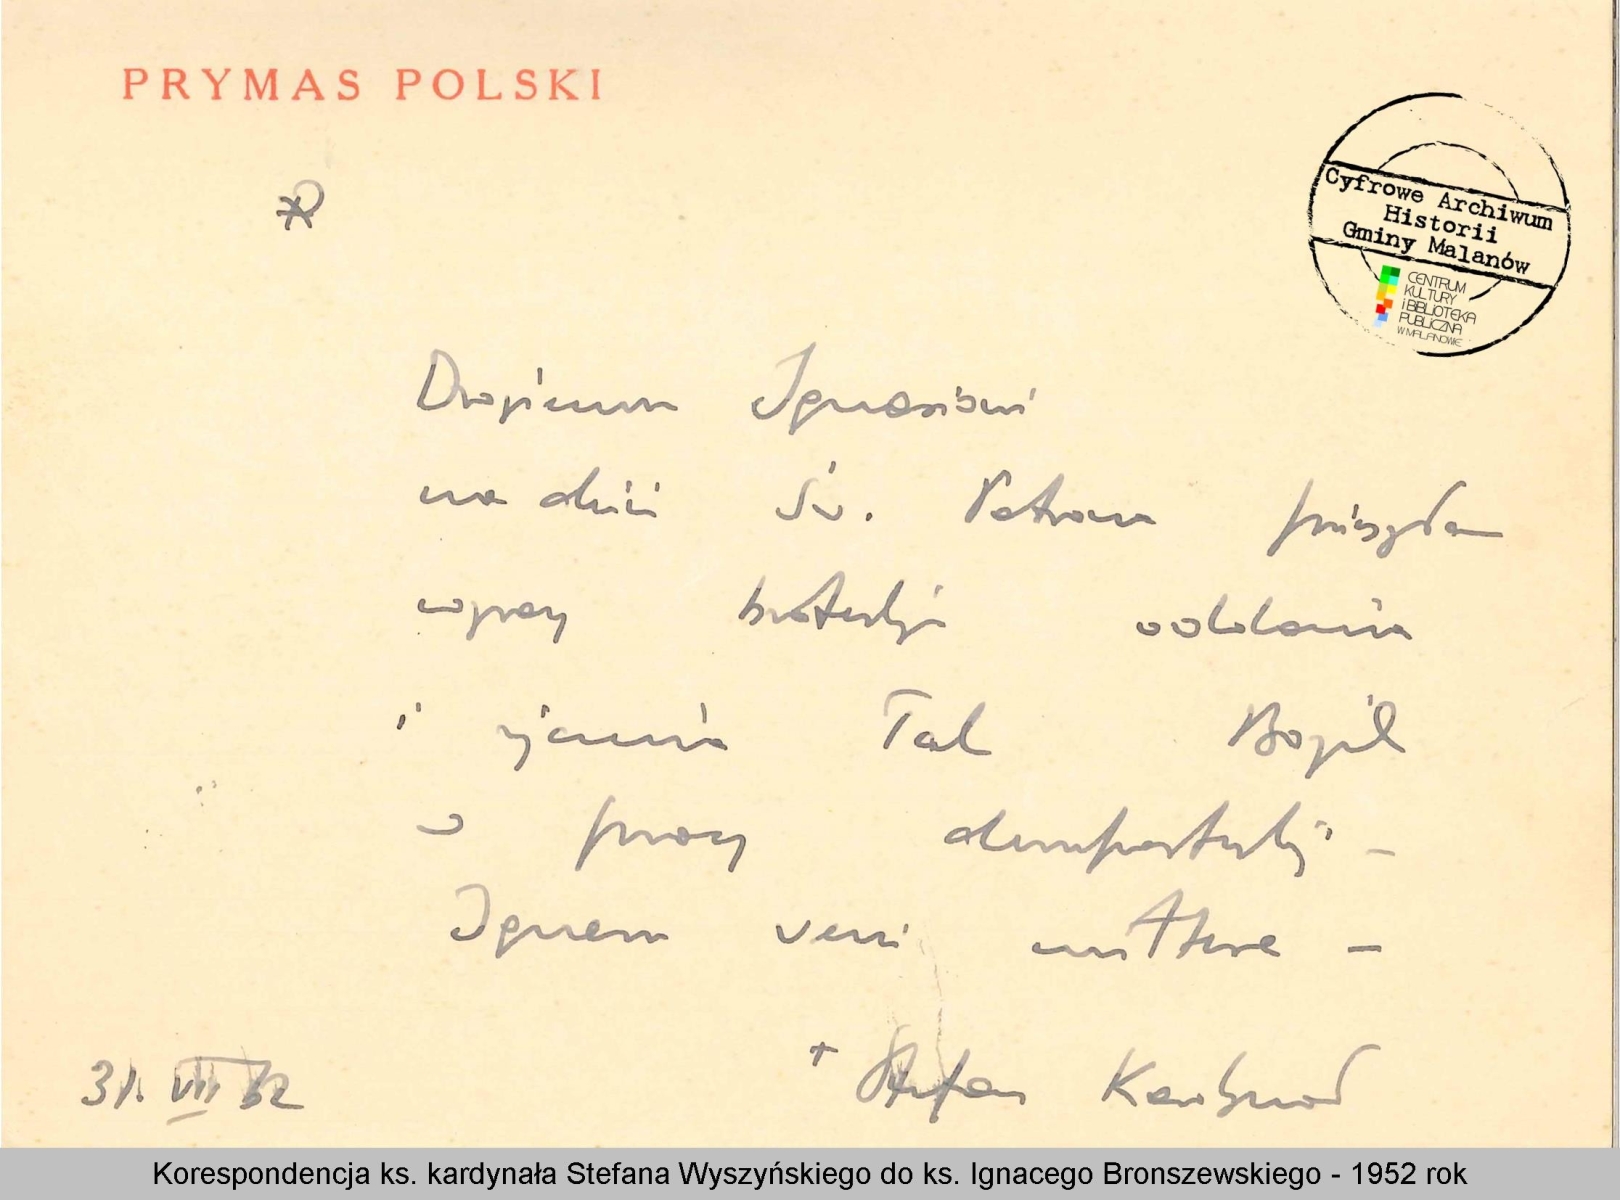 PRYMAS POLSKI
Cyfrowe Archiwum
Historii
Gminy Malanów
CENTRUM
KULTURY
i BIBLIOTEKA
PUBLICZNA
W MALANOWIE
Drogiemu Ignasiowi
na dzień Św. Patrona przesyłam
wyrazy braterskiego oddania
i życzenia Łask Bożych
w pracy duszpasterskiej –
Ignem veni mittere –
+ Stefan Kard
31. VII 52
Korespondencja ks. kardynała Stefana Wyszyńskiego do ks. Ignacego Bronszewskiego - 1952 rok